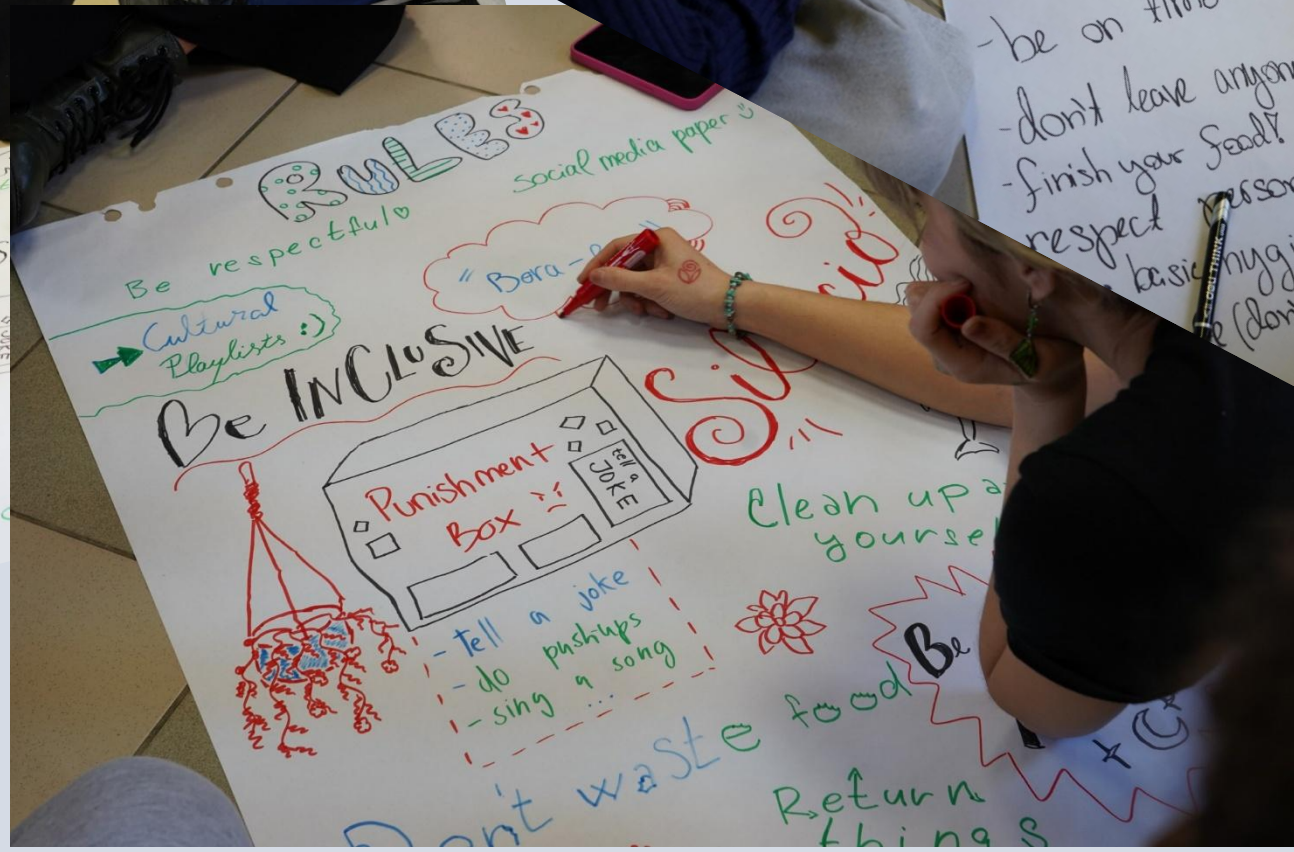 RULES
social media paper
Be respectful
"Bora-
Cultural
Playlists :)
Be INCLUSIVE
Punishment
BOX
tell a
JOKE
- tell a joke
- do pushups
- sing a song
...
Clean up
yourse
Don't waste food
Be
Return
things
- be on
- don't leave anyon
- finish your food!
respect
basic hyg